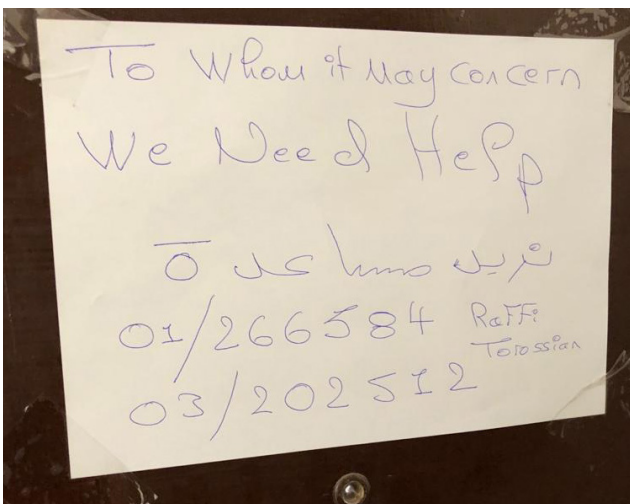 To Whom it May Concern
We Need Help
نريد مساعدة
01/266584 Raffi
Torossian
03/202512